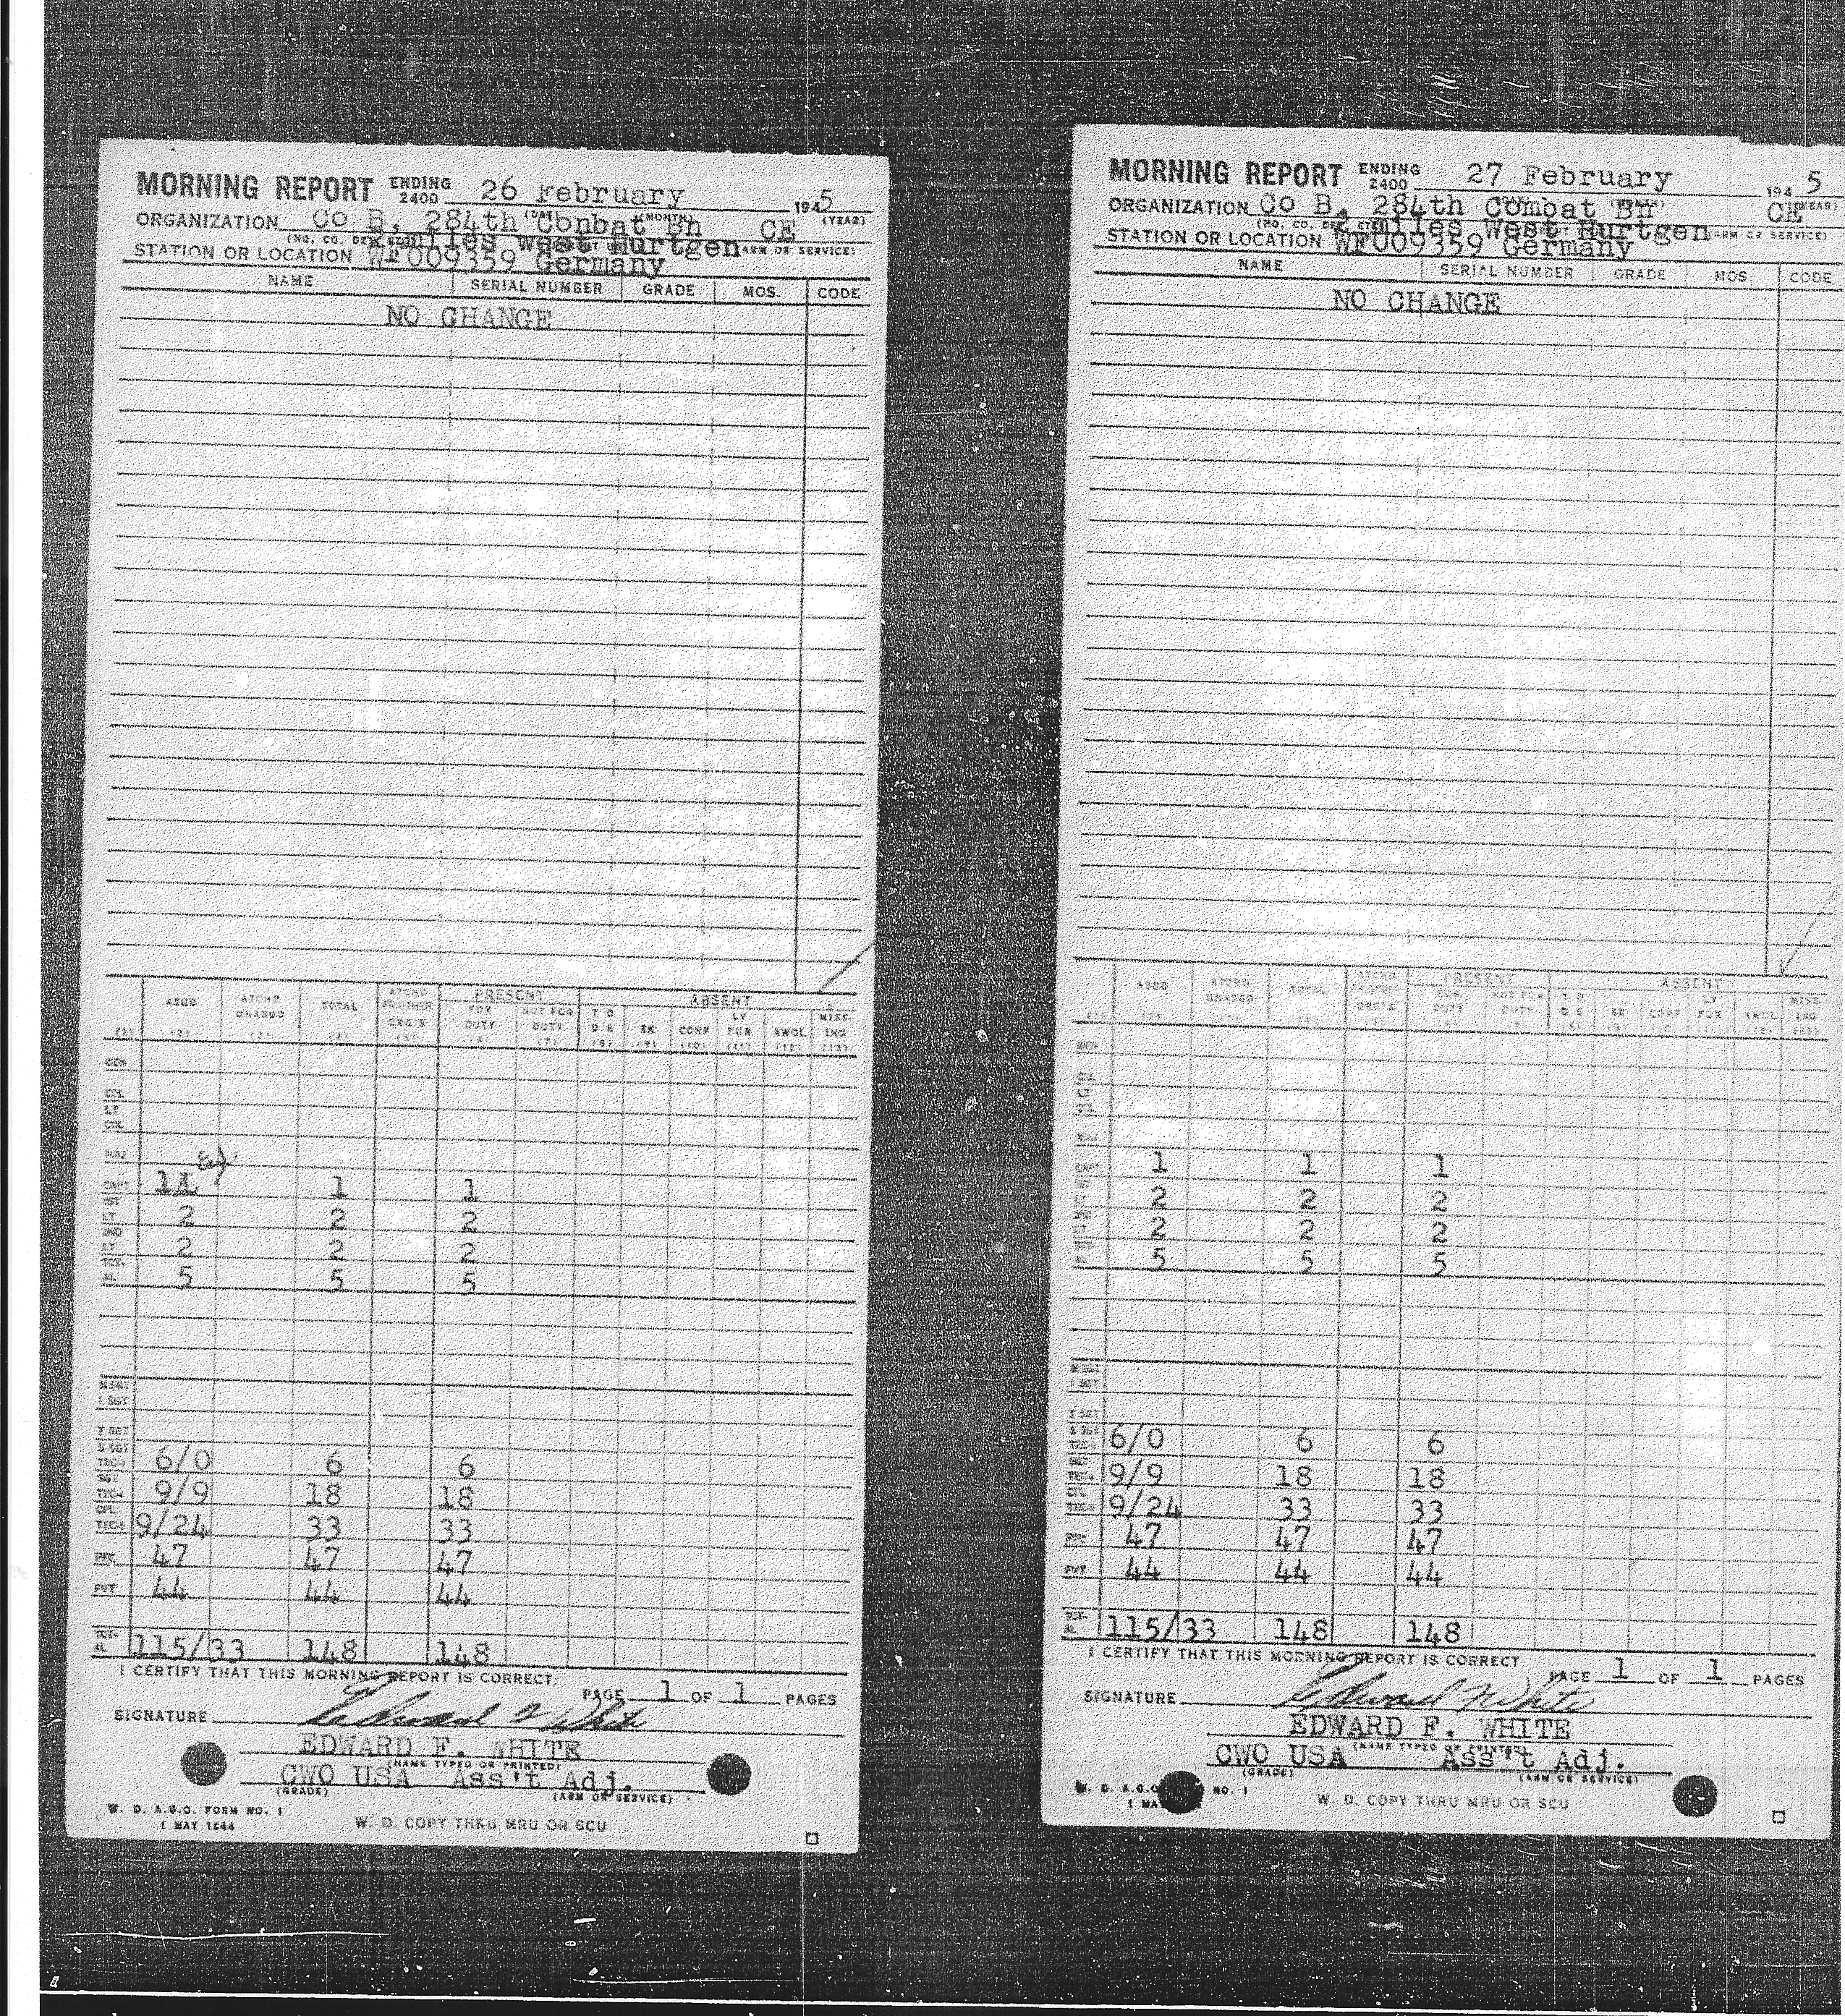 MORNING REPORT ENDING 2400 26 February 1945
(DAY) (MONTH) (YEAR)
ORGANIZATION Co B, 284th Conbat Bn CE
miles West Hurtgen (ARM OR SERVICE)
STATION OR LOCATION WF009359 Germany
NAME SERIAL NUMBER GRADE MOS. CODE
NO CHANGE
ASGD ATCHD CHARGED TOTAL ATCHD FR OTHER ORG'S PRESENT FOR DUTY NOT FOR DUTY ABSENT T D D S SK CONF LV FUR AWOL MISS-ING
(1) (2) (3) (4) (5) (6) (7) (8) (9) (10) (11) (12) (13)
COL
LT COL
MAJ
CAPT 1 1 1
1ST LT 2 2 2
2ND LT 2 2 2
TOT-AL 5 5 5
M SGT
1 SGT
T SGT
S SGT TEC3 6/0 6 6
SGT TEC4 9/9 18 18
CPL TEC5 9/24 33 33
PFC 47 47 47
PVT 44 44 44
TOT-AL 115/33 148 148
I CERTIFY THAT THIS MORNING REPORT IS CORRECT.
PAGE 1 OF 1 PAGES
SIGNATURE Edward F White
EDWARD F. WHITE
(NAME TYPED OR PRINTED)
CWO USA Ass't Adj.
(GRADE) (ARM OR SERVICE)
W. D. A.G.O. FORM NO. 1
1 MAY 1944 W. D. COPY THRU MRU OR SCU
MORNING REPORT ENDING 2400 27 February 1945
(YEAR)
ORGANIZATION Co B, 284th Combat Bn CE
miles West Hurtgen (ARM OR SERVICE)
STATION OR LOCATION WF009359 Germany
NAME SERIAL NUMBER GRADE MOS. CODE
NO CHANGE
ASGD ATCHD CHARGED TOTAL ATCHD FR OTHER ORG'S PRESENT FOR DUTY NOT FOR DUTY ABSENT T D D S SK CONF LV FUR AWOL MISS-ING
MAJ
CAPT 1 1 1
2 2 2
2 2 2
5 5 5
M SGT
1 SGT
T SGT
S SGT 6/0 6 6
9/9 18 18
9/24 33 33
PFC 47 47 47
PVT 44 44 44
TOT-AL 115/33 148 148
I CERTIFY THAT THIS MORNING REPORT IS CORRECT
PAGE 1 OF 1 PAGES
SIGNATURE Edward F White
EDWARD F. WHITE
(NAME TYPED OR PRINTED)
CWO USA Ass't Adj.
(GRADE) (ARM OR SERVICE)
W. D. A.G.O. NO. 1
1 MAY W. D. COPY THRU MRU OR SCU